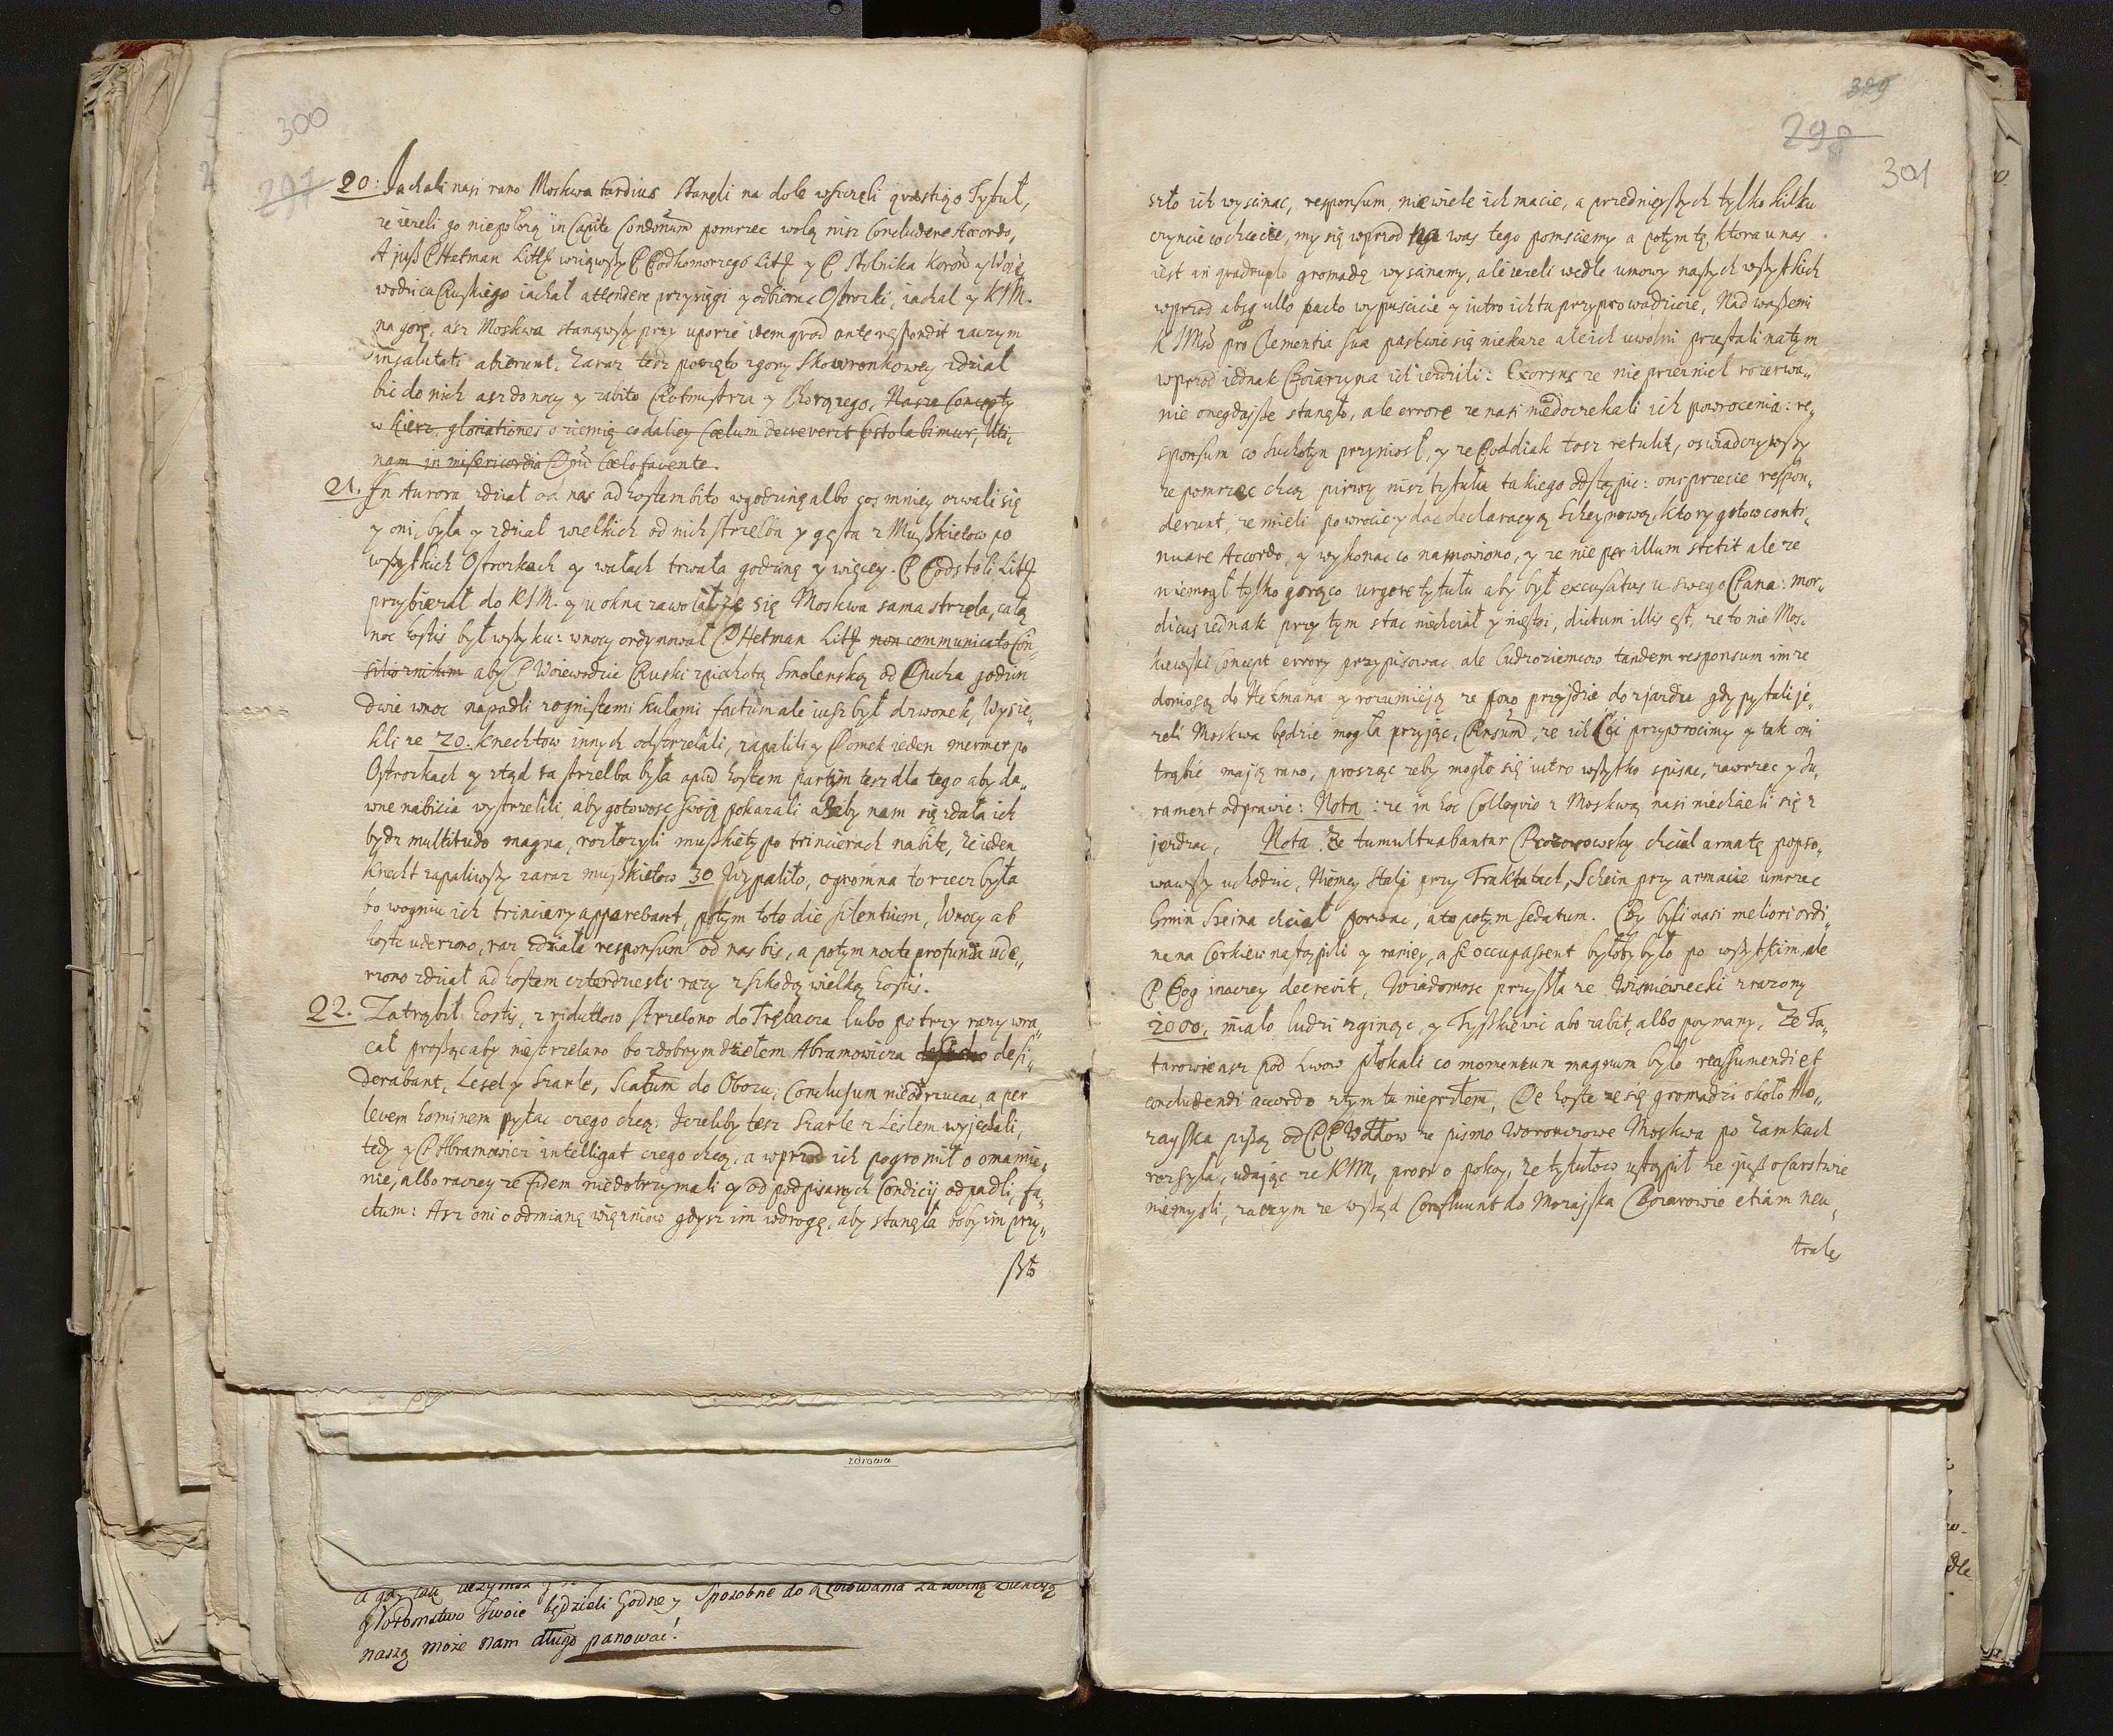 300
297
20. Jachali nasi rano Moskwa tardius Stanęli na dole wsczęli quæstią o Tytuł,
ze iezeli go niepołozą in Capite Condonum pomrzec wolą nisz Concludere Accordo,
A jusz P Hetman Litt wziąwszy P Podkomorzego Litt y P Stolnika Koron y Woie„
wodzica Ruskiego iachał attendere przysięgi y odbierac Ostrozki, iachał y KJM.
na gorę, asz Moskwa stanąwszy przy uporze idem quod ante respondit zaczym
insalutati abierunt. Zaraz tesz poczęto zgory Skowronkowey zdział
bic do nich asz do nocy y zabito Rotmistrza y Chorązego. Nasze Concepty
w kierz, gloriationes o ziemię co daliey Cœlum decreverit p stolabimur, Uti„
nam in misericordia Cœlo favente.
21. In Aurora zdział od nas ad hostem bito w godzinę albo cos mniey ozwali się
y oni, była y zdział wielkich od nich strzelba y gęsta z Muszkietow po
wszytkich Ostrozkach y wałach trwała godzinę y więcey. P Podstoli Litt
przybierał do KJM. y u okna zawołał ze się Moskwa sama strzela, całą
noc hostis był w szyku: wnocy ordynował P Hetman Litt non communicato Con„
silio aby P Woiewodzic Ruski z piechotą Smolenską od Ducha godzin
dwie wnoc napadli z ognistemi kulami factum ale iusz był dzwonek, Wysie„
kli ze 20. knechtow innych odstrzelali, zapalili y Domek ieden mermer po
Ostrozkach y ztąd ta strzelba była apud hostem partim tesz dla tego aby da„
wne nabicia wystrzelili, aby gotowosc swoię pokazali a zeby nam się zdała ich
bydz multitudo magna, rozłozyli muszkiety po trincierach nabite, ze ieden
Knecht zapaliwszy zaraz muszkietow 30 Wypaliło, ogromna to rzecz była
bo w ogniu ich trinciery apparebant, potym toto die silentium, Wnocy ab
hoste uderzono, raz zdziała responsum od nas bis, a potym nocte profunda ude„
rzono zdział ad hostem czterdziesci razy z szkodą wielką hostis.
22. Zatrąbił hostis, z riduttow strzelono do Trębacza lubo po trzy razy wra„
cał prosząc aby niestrzelano bo z dobrym dziełem Abramowicza desi„
derabant, Lesel y Szarle, Scatum do Obozu; Conclusum nieodrzucac, a per
levem hominem pytac czego chcą. Jezeliby tesz Szarle z Leslem wyjechali,
tedy y P Abramowicz intelligat czego chcą, a wprzod ich pogromił o omamie„
nie, albo raczey ze fidem niedotrzymali y od podpisanych Condicij odpadli, fa„
ctum: Asz oni o odmianę więzniow gdysz im w drogę, aby stanęła boby im przy„
szło
a gdy tak
y Potomstwo Twoie będzieli Godne y Sposobne do
naszą może nam długo panowac!
zdrowa
329
298
301
szło ich wyscinac, responsum, niewiele ich macie, a przednieyszych tylko kilku
czyncie co chcecie, my się wprzod na was tego pomsciemy a potym tę, ktora u nas
iest in quadruplo gromadę wyscinamy, ale iezeli wedle umowy naszych wszytkich
wprzod absq ullo pacto wypuscicie y iutro ich tu przyprowadzicie, Nad waszemi
KJMsc pro Clementia sua pastwic się niekaze ale ich uwolni przestali natym
wprzod iednak Boiaryna ich iezdzili: Exorsus ze nie przeniich rozerwa„
nie onegdaysze stanęło, ale errore ze nasi niedoczekali ich powrocenia: re„
sponsum co Suchotyn przyniosł, y ze Poddiak tosz retulit, oswiadczywszy
ze pomrzec chcą pirwey nisz tytułu takiego odstąpic: oni przecie respon„
derunt, ze mieli powrocic y dac declaracyą Scheynową, ktory gotow conti„
nuare Accordo, y wykonac co namowiono, y ze nie per illum stetit ale ze
niemogł tylko gorąco urgere tytułu aby był excusatus u swego Pana: mor„
dicus iednak przy tym stac niechciał y niestoi, dictum illis est, ze to nie Mos„
kiewski Concept errory przypisowac, ale Cudzoziemcow tandem responsum im ze
doniosą do Hetmana y rozumieją ze pono przyidzie do zjazdu gdy pytali je„
zeli Moskwa będzie mogła przyjąc, Respnsum, ze ich Cci przywrocimy y tak oni
trąbic mają rano, prosząc zeby mogło się iutro wszytko spisac, zawrzec y Ju„
rament odprawic: Nota: ze in hoc Colloquio z Moskwą nasi niechcieli się z
jezdzac, Nota. Ze tumultuabantur Prozorowsky chciał armatę popso„
wawszy uchodzic, Niemcy Stali przy Traktatach, Schein przy armacie umrzec
Gmin Szeina chciał porwac, a to potym sedatum. By byli nasi meliori ordi„
ne na Cerkiew nastąpili y raniey, a se occupassent byłoby było po wszytkim ale
P Bog inaczey decrevit, Wiadomosc przyszła ze Wisniewiecki zrazony
2000, miało ludzi zginąc, y Tyszkiewic abo zabit, albo poymany, Ze Ta„
tarowie asz pod Lwow płokali co momentum magnum było reassumendi et
concludendi accordo z tym tu nieprzłem, De hoste ze się gromadzi około Mo„
zayska piszą od P P Wołkow ze pismo Woronczowe Moskwa po Zamkach
rozsyła, udając ze KJM, prosi o pokoy, ze tytułow ustąpił ze jusz o Carstwie
niemysli, zaczym ze wsząd Confluunt do Mozajska Boiarowie etiam neu„
trales